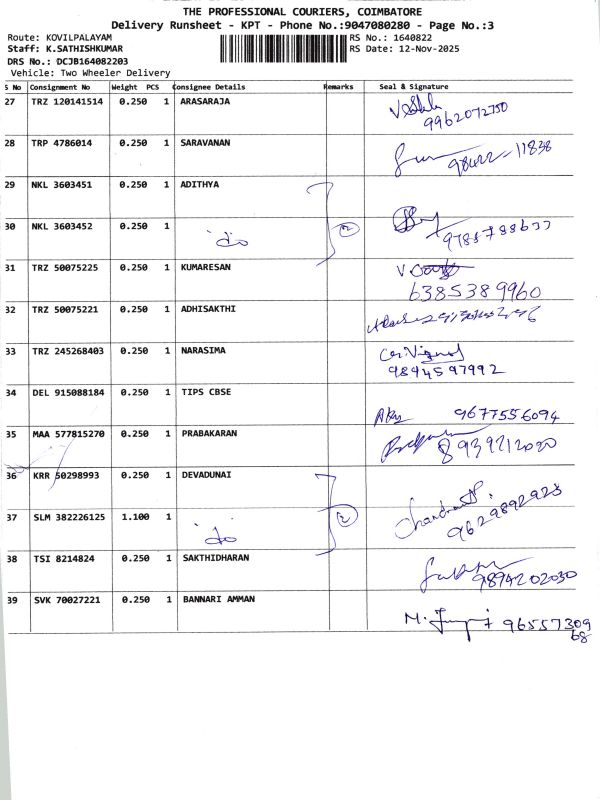 THE PROFESSIONAL COURIERS, COIMBATORE
Delivery Runsheet - KPT - Phone No.:9047080280 - Page No.:3
Route: KOVILPALAYAM RS No.: 1640822
Staff: K.SATHISHKUMAR RS Date: 12-Nov-2025
DRS No.: DCJB164082203
Vehicle: Two Wheeler Delivery
S No Consignment No Weight PCS Consignee Details Remarks Seal & Signature
27 TRZ 120141514 0.250 1 ARASARAJA
9962072750
28 TRP 4786014 0.250 1 SARAVANAN
98422-11838
29 NKL 3603451 0.250 1 ADITHYA
30 NKL 3603452 0.250 1
do 2
31 TRZ 50075225 0.250 1 KUMARESAN
6385389960
32 TRZ 50075221 0.250 1 ADHISAKTHI
33 TRZ 245268403 0.250 1 NARASIMA
9894597992
34 DEL 915088184 0.250 1 TIPS CBSE
9677556094
35 MAA 577815270 0.250 1 PRABAKARAN
8939212020
36 KRR 50298993 0.250 1 DEVADUNAI
37 SLM 382226125 1.100 1
do 2 9629892923
38 TSI 8214824 0.250 1 SAKTHIDHARAN
9894202030
39 SVK 70027221 0.250 1 BANNARI AMMAN
96557309
68